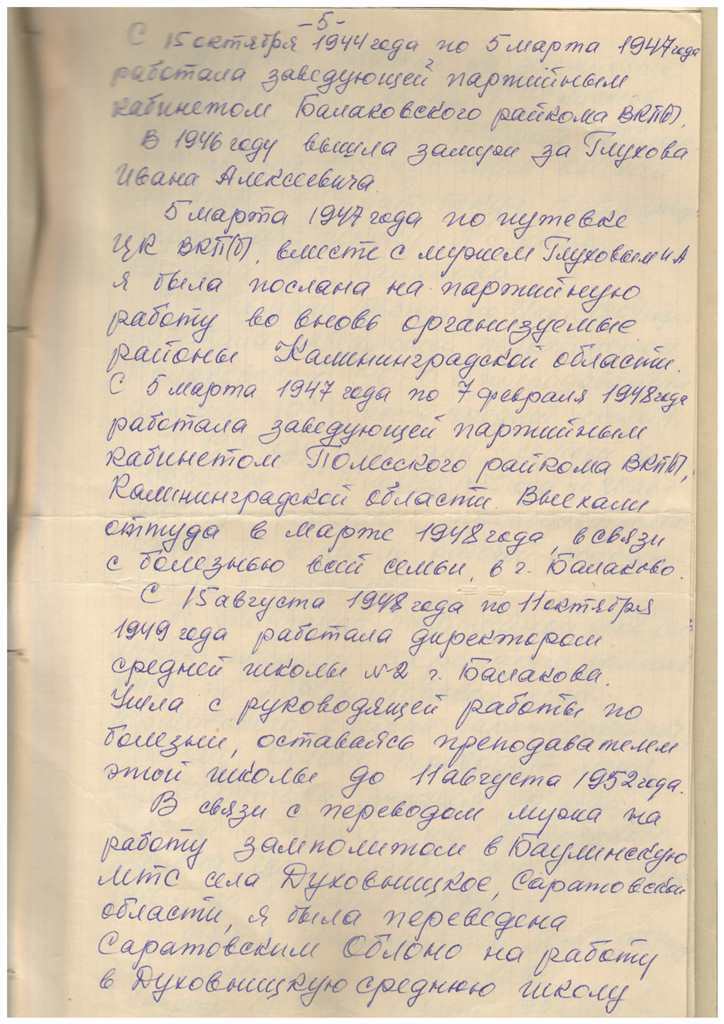 -5-
С 15 октября 1944 года по 5 марта 1947 года
работала заведующей партийным
кабинетом Балаковского райкома ВКП(б).
В 1946 году вышла замуж за Глухова
Ивана Алексеевича.
5 марта 1947 года по путевке
ЦК ВКП(б), вместе с мужем Глуховым И А
я была послана на партийную
работу во вновь организуемые
районы Калининградской области.
С 5 марта 1947 года по 7 февраля 1948 года
работала заведующей партийным
кабинетом Полесского райкома ВКП(б),
Калининградской области. Выехали
оттуда в марте 1948 года, в связи
с болезнью всей семьи, в г. Балаково.
С 15 августа 1948 года по 11 октября
1949 года работала директором
средней школы №2 г. Балакова.
Ушла с руководящей работы по
болезни, оставаясь преподавателем
этой школы до 11 августа 1952 года.
В связи с переводом мужа на
работу замполитом в Баулинскую
МТС села Духовницкое, Саратовской
области, я была переведена
Саратовским Облоно на работу
в Духовницкую среднюю школу